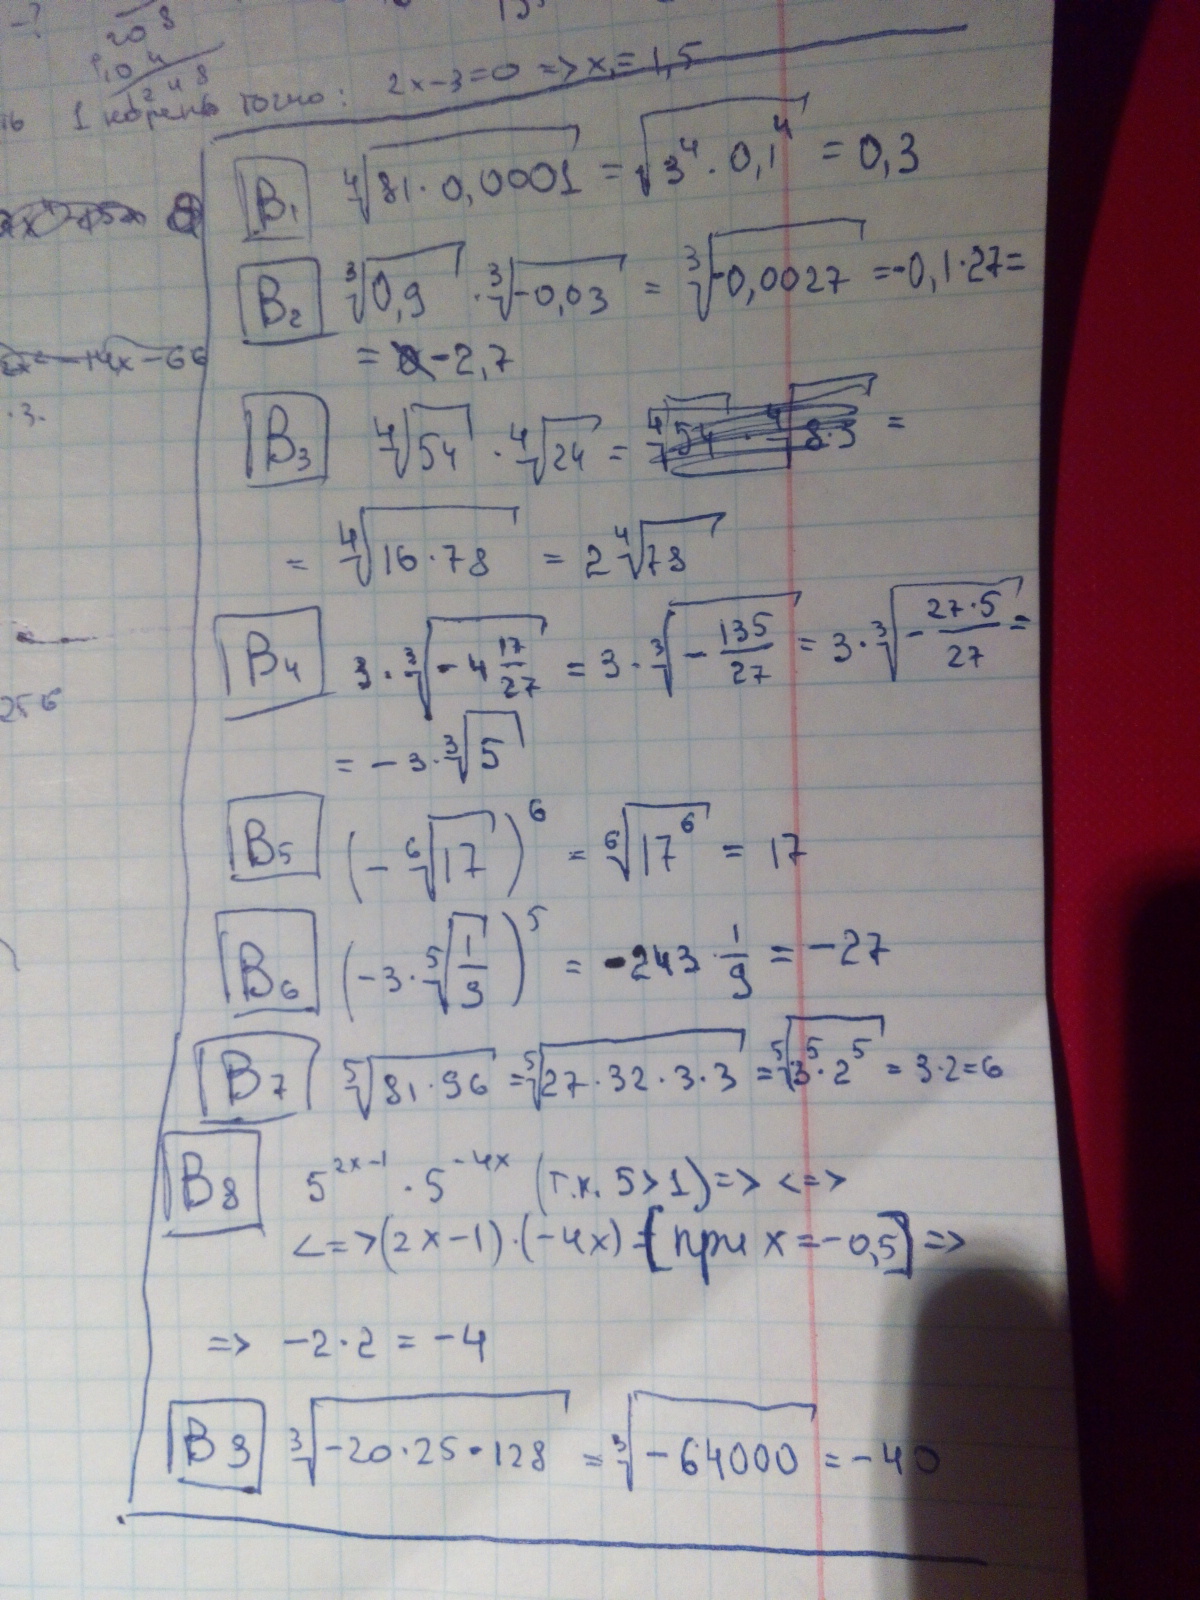 -?
20 8
1 корень точно: 2x-3=0 => x=1,5
B1 ⁴√(81·0,0001) = √(3⁴·0,1⁴) = 0,3
B2 ³√0,9 · ³√-0,03 = ³√-0,0027 = -0,1·27=
= -2,7
B3 ⁴√54 · ⁴√24 = =
= ⁴√(16·78) = 2 ⁴√78
B4 3·³√(-4 17/27) = 3·³√(-135/27) = 3·³√(-27·5/27) =
= -3·³√5
B5 (-⁶√17)⁶ = ⁶√17⁶ = 17
B6 (-3·⁵√(1/9))⁵ = -243·1/9 = -27
B7 ⁵√(81·96) = ⁵√(27·32·3·3) = ⁵√(3⁵·2⁵) = 3·2=6
B8 5^(2x-1) · 5^(-4x) (т.к. 5>1) => <=>
<=> (2x-1)·(-4x) = [при x=-0,5] =>
=> -2·2 = -4
B9 ³√(-20·25·128) = ³√-64000 = -40
·3.
256